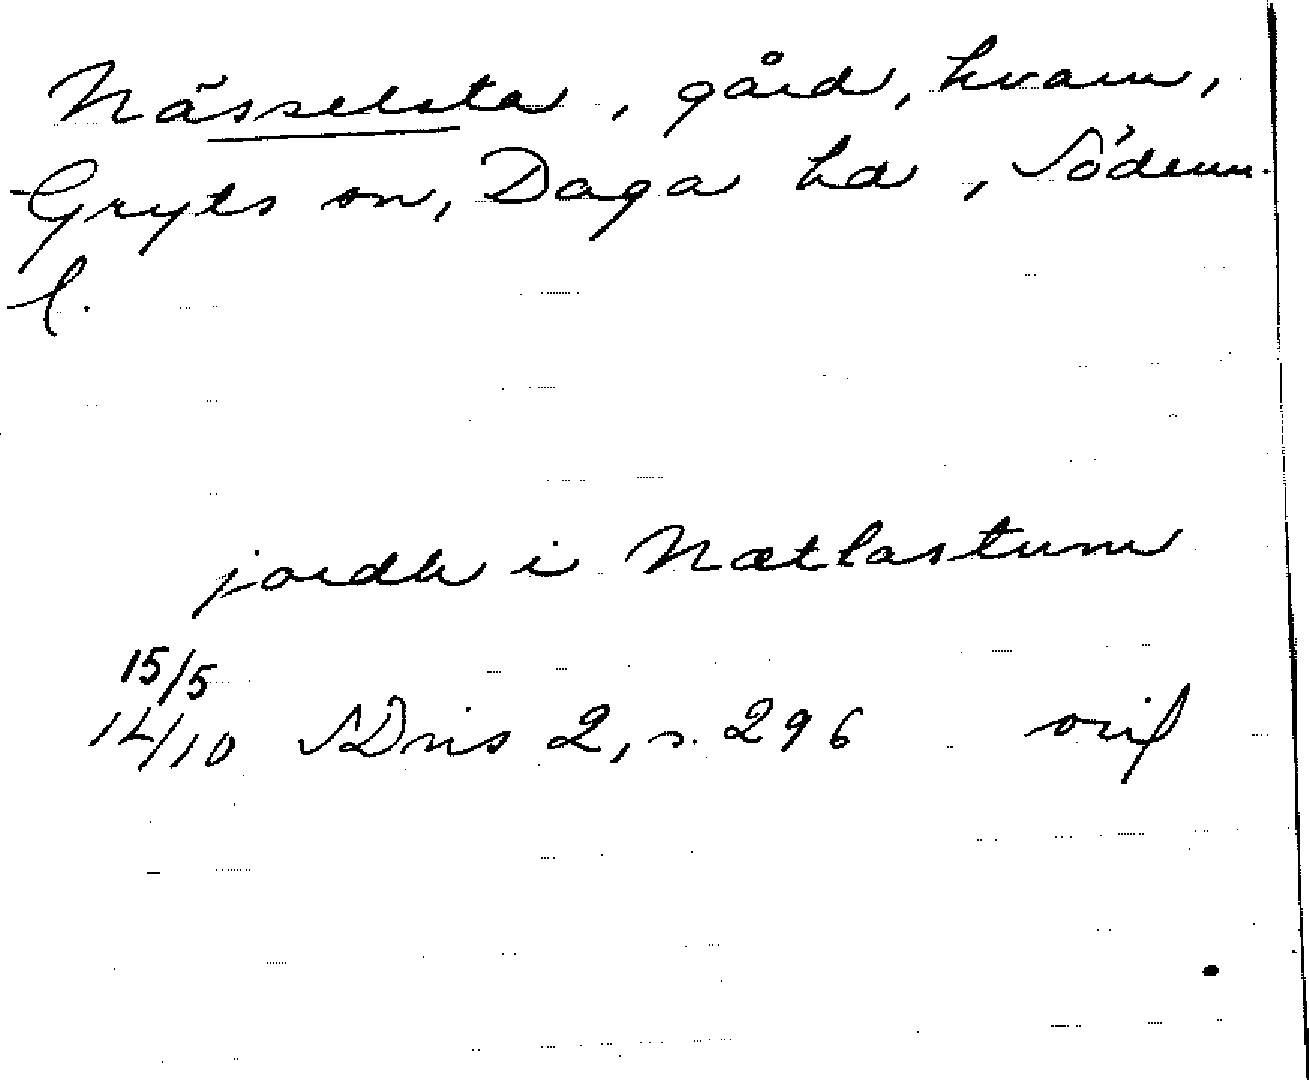 Nässelsta, gård, kvarn,
Gryts sn, Daga hd, Söderm.
l.
jordh i Nætlastum
15/5
14/10 SDns 2, s. 296 orif